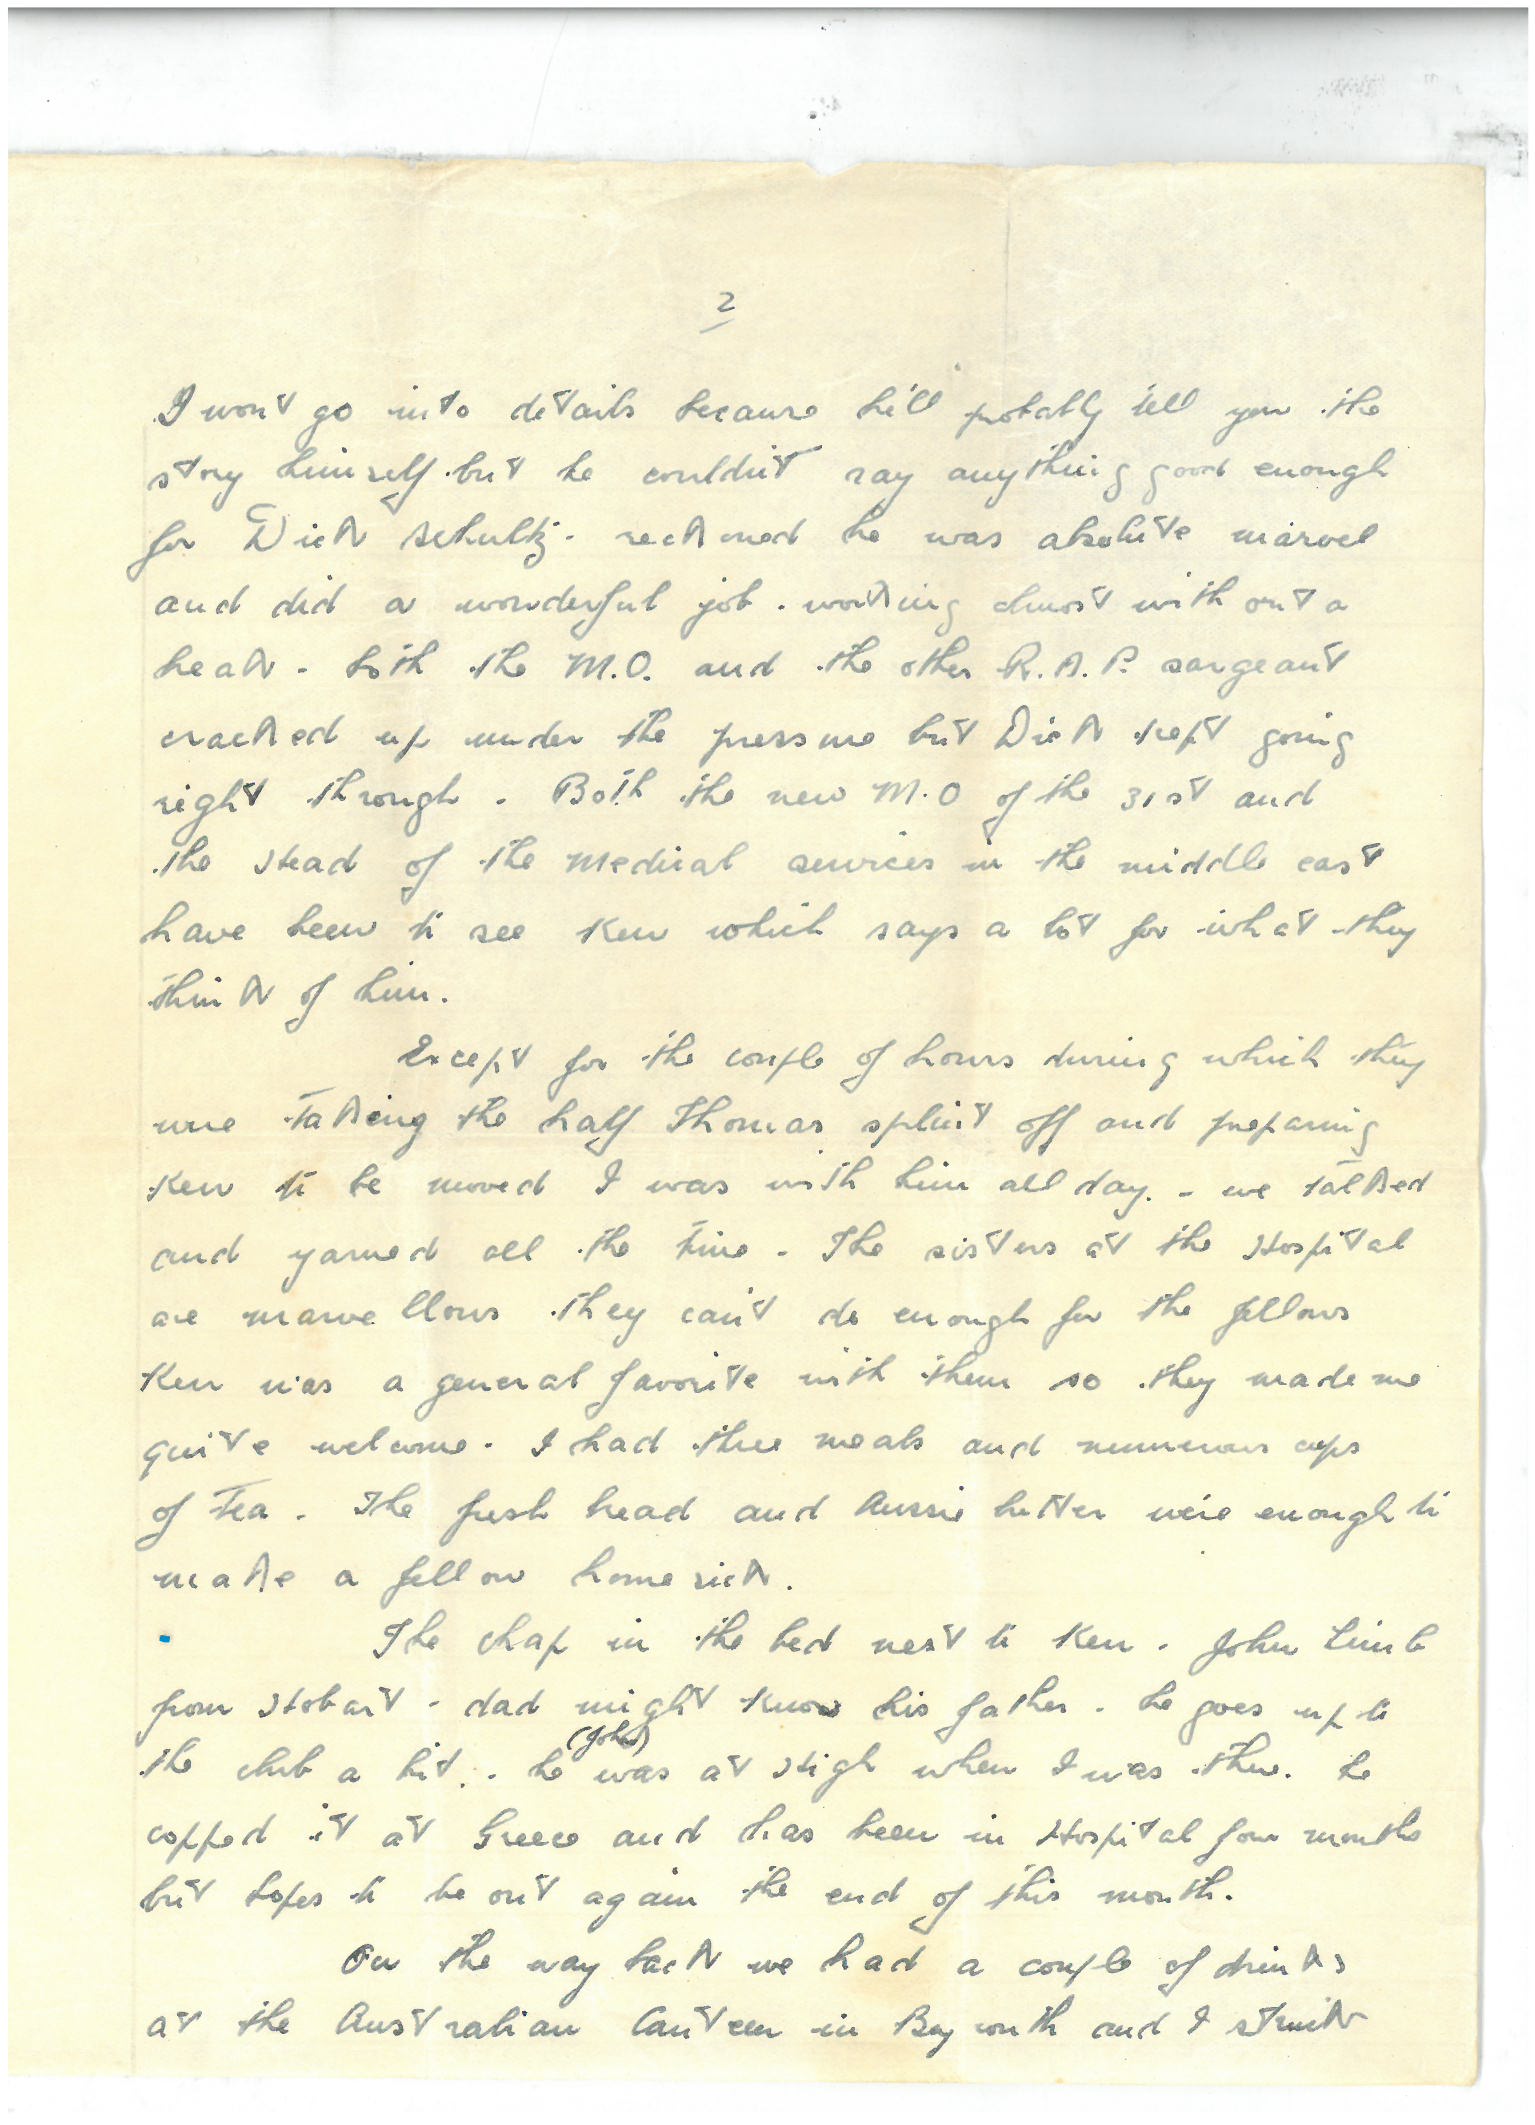 2
I won't go into details because he'll probably tell you the
story himself but he couldn't say anything good enough
for Dick Schultz - reckoned he was absolute marvel
and did a wonderful job - working almost with out a
break - both the M.O. and the other R.A.P. sargeant
cracked up under the pressure but Dick kept going
right through. Both the new M.O of the 31st and
the Head of the Medical services in the middle east
have been to see Ken which says a lot for what they
think of him.
Except for the couple of hours during which they
were taking the half Thomas splint off and preparing
Ken to be moved I was with him all day. - we talked
and yarned all the time - The sisters at the Hospital
are marvellous they can't do enough for the fellows
Ken was a general favorite with them so they made me
quite welcome. I had three meals and numerous cups
of tea. The fresh bread and Aussie butter were enough to
make a fellow home sick.
The chap in the bed next to Ken - John Limb
from Hobart - dad might know his father - he goes up to
the club a bit. - he (John) was at High when I was there. he
copped it at Greece and has been in Hospital four months
but hopes to be out again the end of this month.
On the way back we had a couple of drinks
at the Australian Canteen in Beyrouth and I struck